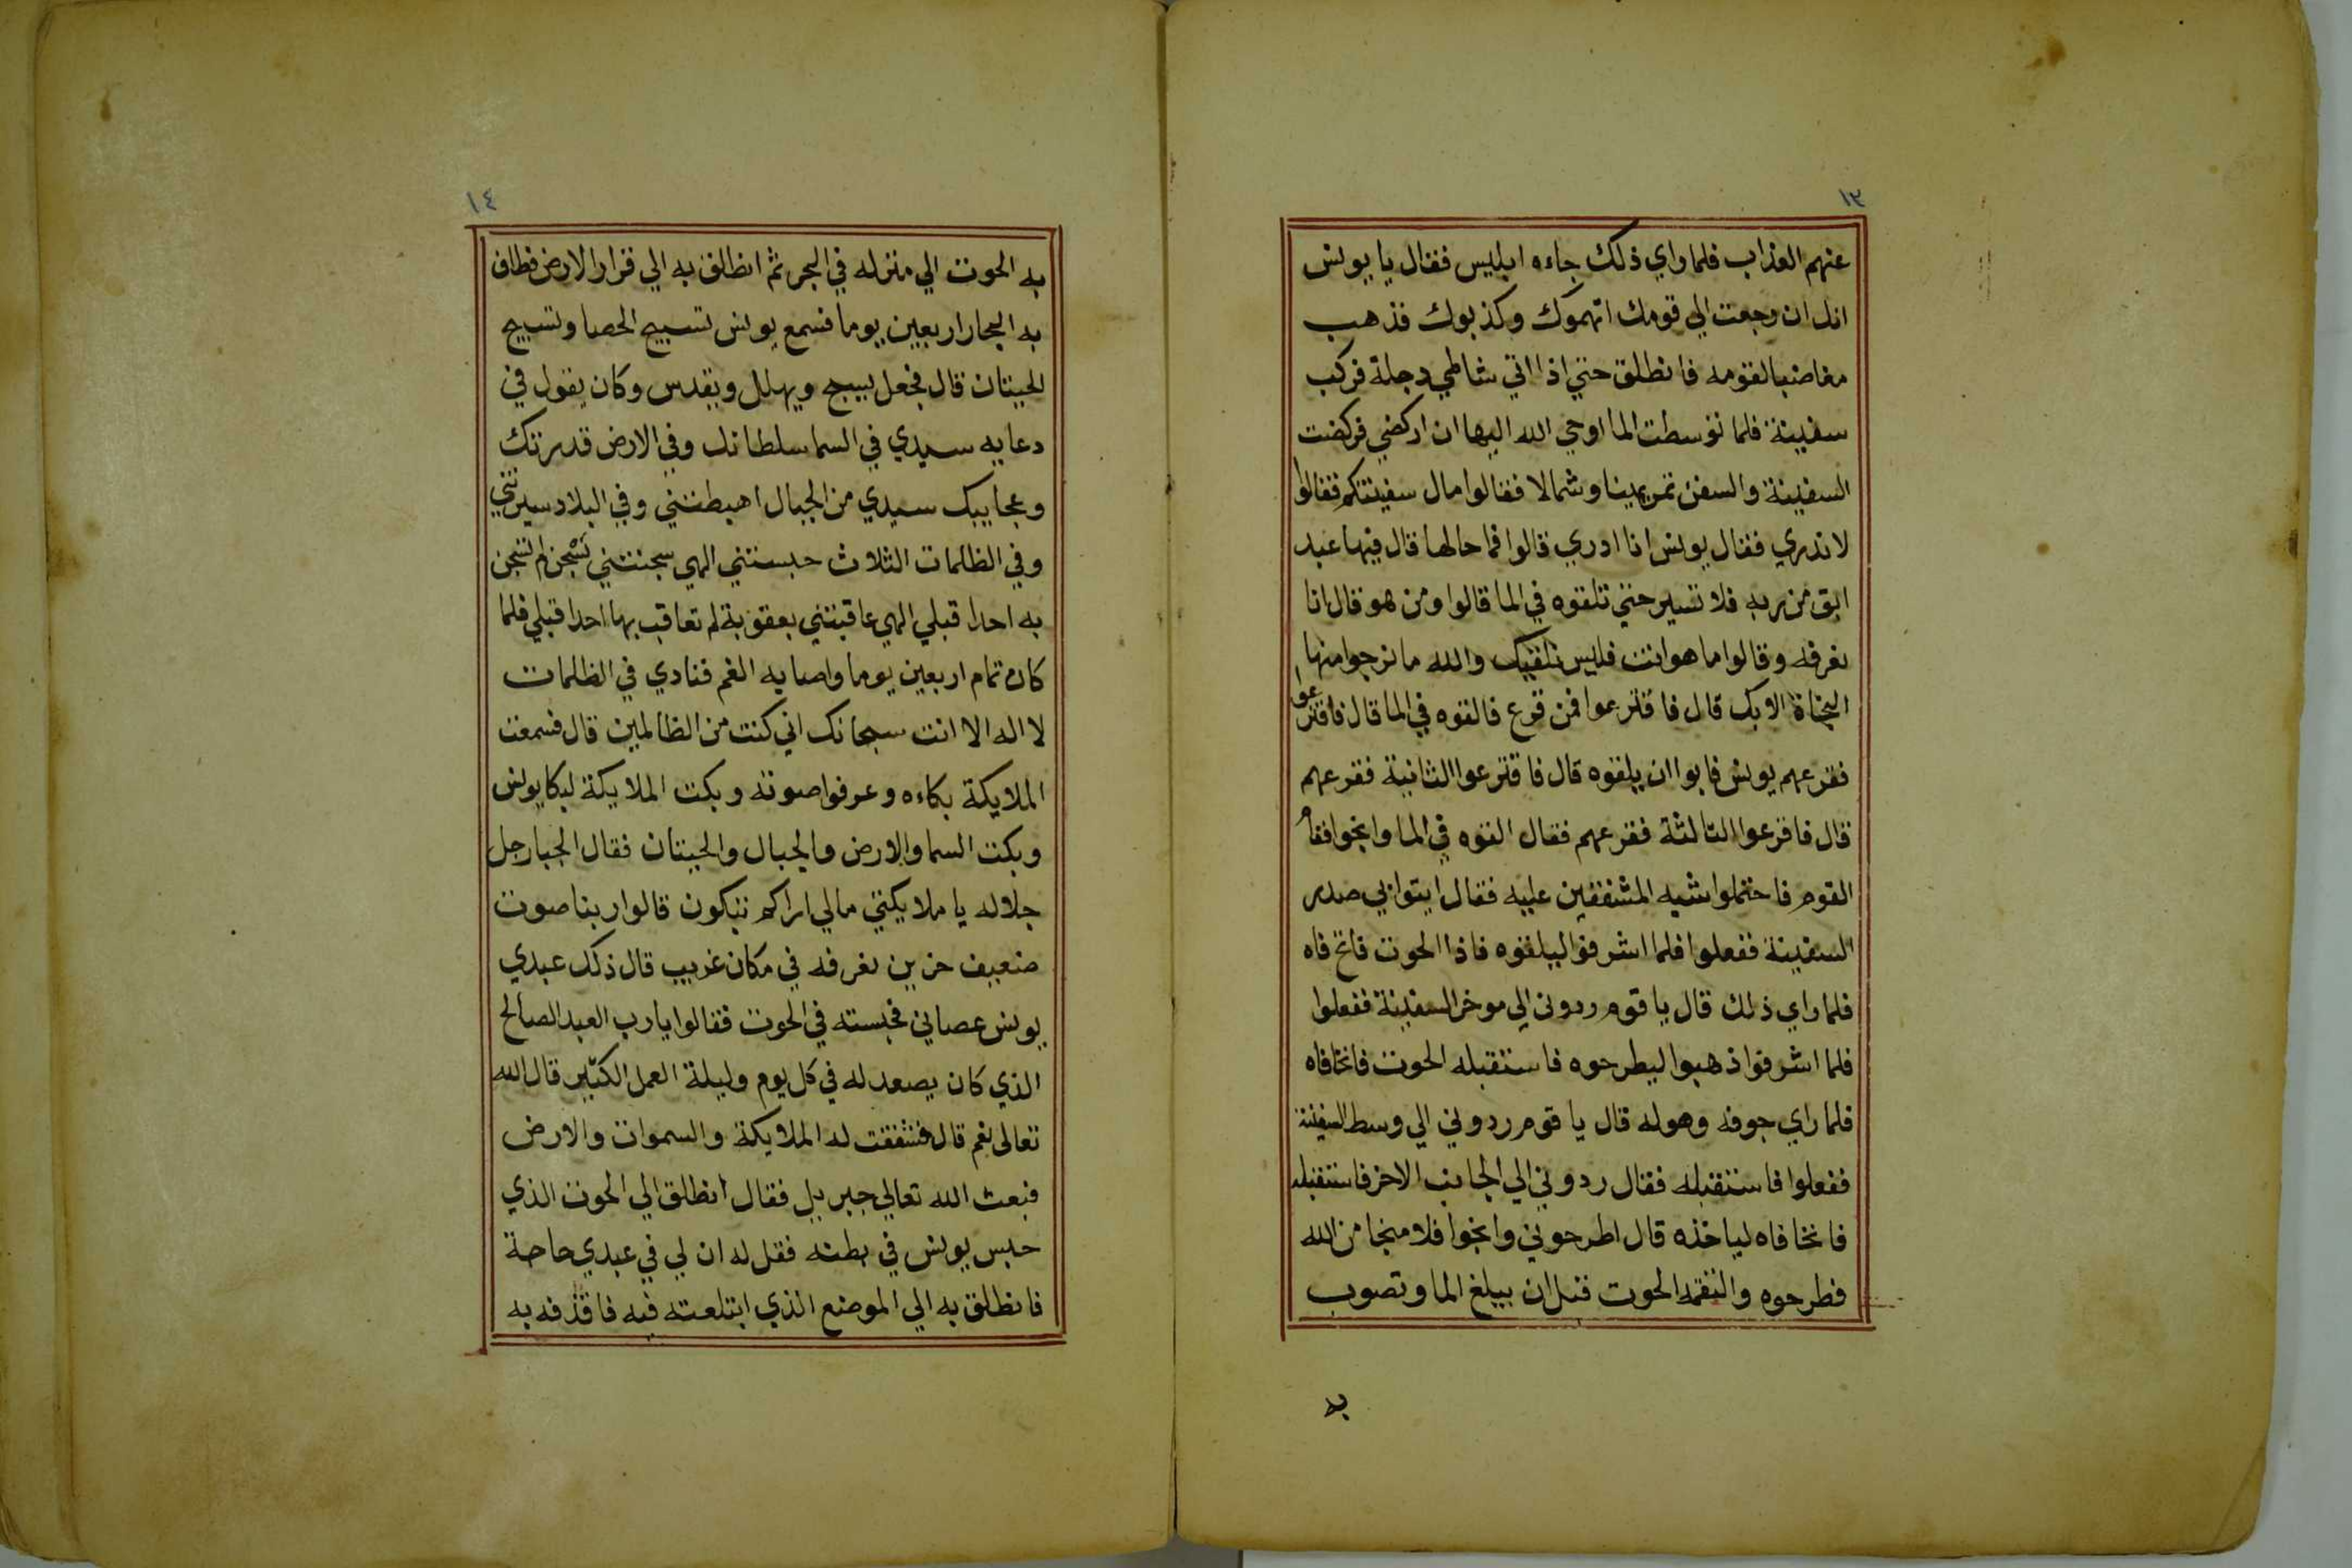 ١٣
عنهم العذاب فلما راي ذلك جاءه ابليس فقال يا يونس
انك ان رجعت الي قومك اتهموك وكذبوك فذهب
مغاضبا لقومه فانطلق حتي اذا اتي شاطي دجلة فركب
سفينة فلما توسطت الما اوحي الله اليها ان اركضي فركضت
السفينة والسفن تمر يمينا وشمالا فقالوا مال سفينتكم فقالوا
لا ندري فقال يونس انا ادري قالوا فما حالها قال فيها عبد
ابق من ربه فلا تسير حتي تلقوه في الما قالوا ومن هو قال انا
نعرفه وقالوا اما هو انت فليس نلقيك والله ما نرجوا منها
النجاة الا بك قال فاقترعوا فمن قرع فالقوه في الما قال فاقترعوا
فقرعهم يونس فابوا ان يلقوه قال فاقترعوا الثانية فقرعهم
قال فاقرعوا الثالثة فقرعهم فقال القوه في الما وانجوا فقام
القوم فاحتملوا شبه المشفقين عليه فقال ايتوا بي صدر
السفينة ففعلوا فلما اشرفوا ليلقوه فاذا الحوت فاتح فاه
فلما راي ذلك قال يا قوم ردوني الي موخر السفينة ففعلوا
فلما اشرفوا ذهبوا ليطرحوه فاستقبله الحوت فاتحا فاه
فلما راي جوفه وهوله قال يا قوم ردوني الي وسط السفينة
ففعلوا فاستقبله فقال ردوني الي الجانب الاخر فاستقبله
فاتحا فاه لياخذه قال اطرحوني وانجوا فلا منجا من الله
فطرحوه والتقمه الحوت قبل ان يبلغ الما وتصوب
به
١٤
به الحوت الي منزله في البحر ثم انطلق به الي قرار الارض فطاف
به البحار اربعين يوما فسمع يونس تسبيح الحصا وتسبيح
الحيتان قال فجعل يسبح ويهلل ويقدس وكان يقول في
دعايه سيدي في السما سلطانك وفي الارض قدرتك
وعجايبك سيدي من الجبال اهبطتني وفي البلاد سيرتني
وفي الظلمات الثلاث حبستني الهي سجنتني بسجن لم تسجن
به احدا قبلي الهي عاقبتني بعقوبة لم تعاقب بها احدا قبلي فلما
كان تمام اربعين يوما واصابه الغم فنادي في الظلمات
لا اله الا انت سبحانك اني كنت من الظالمين قال فسمعت
الملايكة بكاءه وعرفوا صوته وبكت الملايكة لبكا يونس
وبكت السما والارض والجبال والحيتان فقال الجبار جل
جلاله يا ملايكتي مالي اراكم تبكون قالوا ربنا صوت
ضعيف حزين نعرفه في مكان غريب قال ذلك عبدي
يونس عصاني فحبسته في الحوت فقالوا يا رب العبد الصالح
الذي كان يصعد له في كل يوم وليلة العمل الكثير قال الله
تعالى نعم قال فشفقت له الملايكة والسموات والارض
فبعث الله تعالي جبريل فقال انطلق الي الحوت الذي
حبس يونس في بطنه فقل له ان لي في عبدي حاجة
فانطلق به الي الموضع الذي ابتلعته فيه فاقذفه به